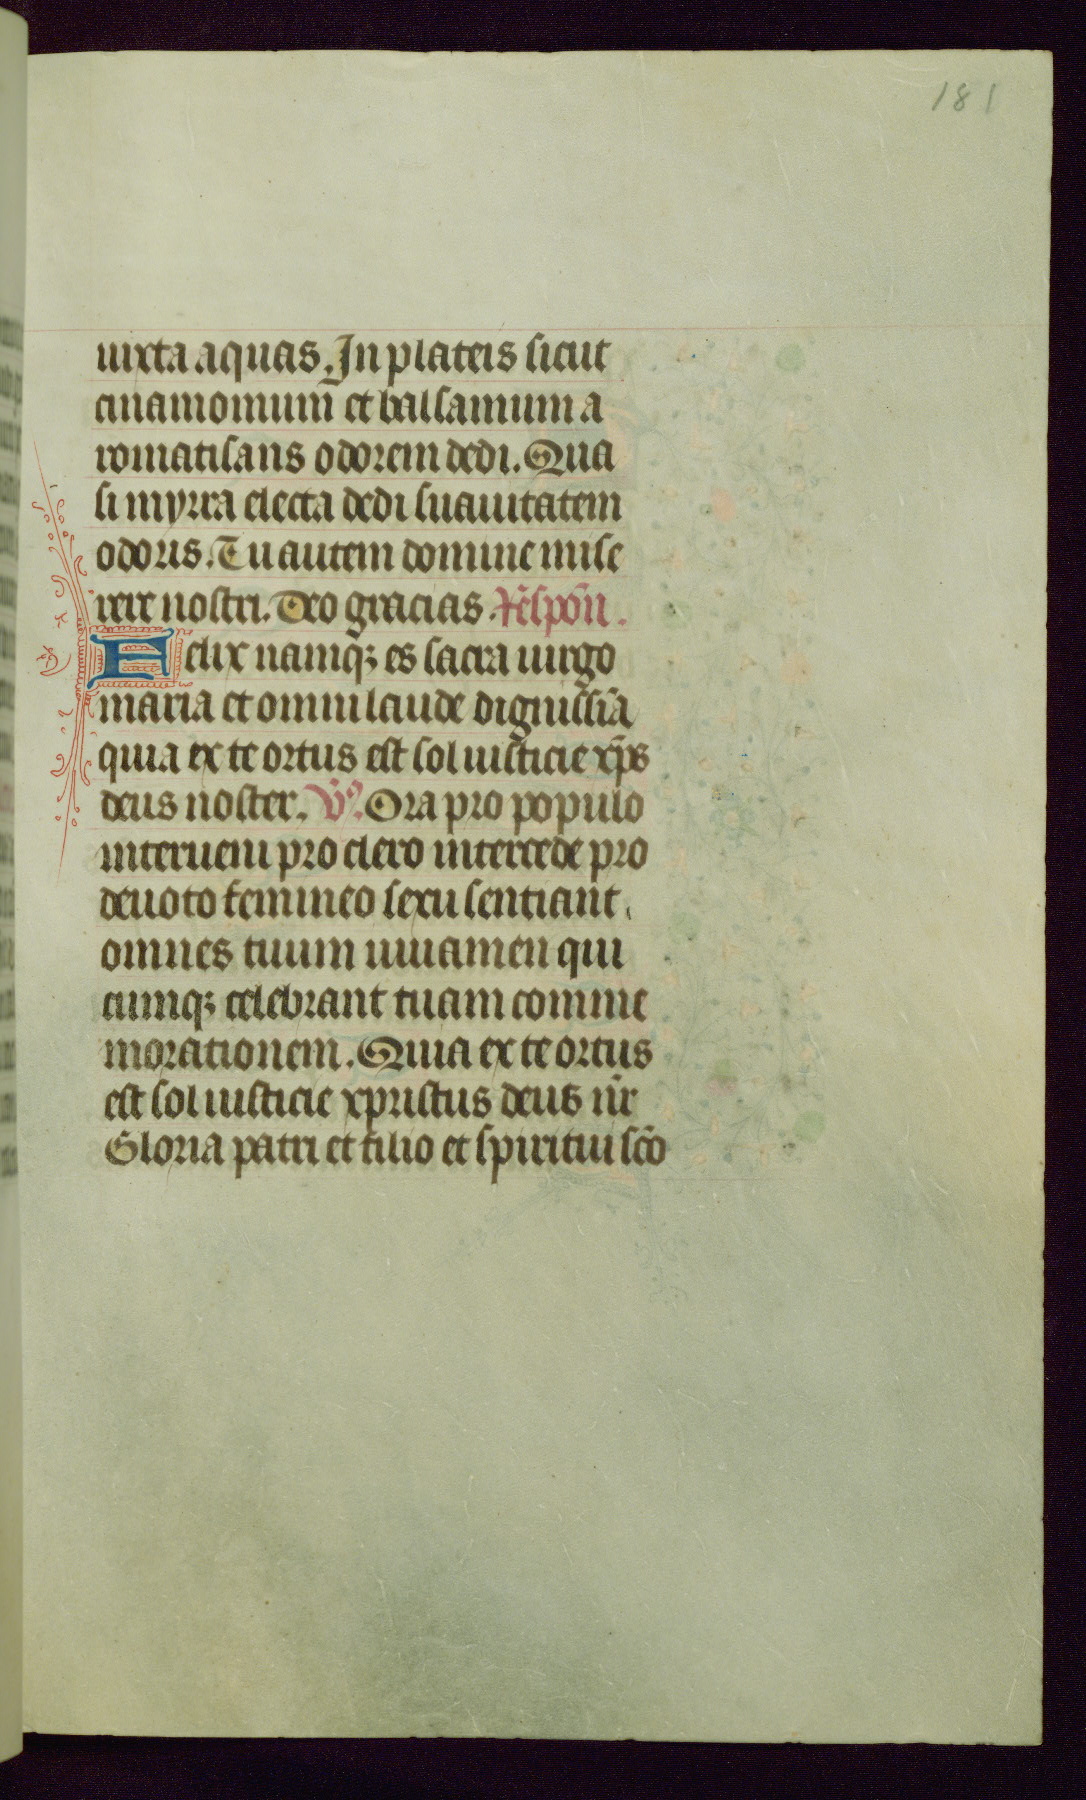 181
iuxta aquas. In plateis sicut
cinamomum̄ et balsamum a
romatisans odorem dedi. Qua
si myrra electa dedi suauitatem
odoris. Tu autem domine mise
rere nostri. Deo gracias. Respōn.
Felix namqꝫ es sacra uirgo
maria et omni laude dignissīa
quia ex te ortus est sol iusticie xp̄s
deus noster. v̄s. Ora pro populo
interueni pro clero intercede pro
deuoto femineo sexu sentiant
omnes tuum iuuamen qui
cumqꝫ celebrant tuam comme
morationem. Quia ex te ortus
est sol iusticie xpristus deus nr̄
Gloria patri et filio et spiritui scō